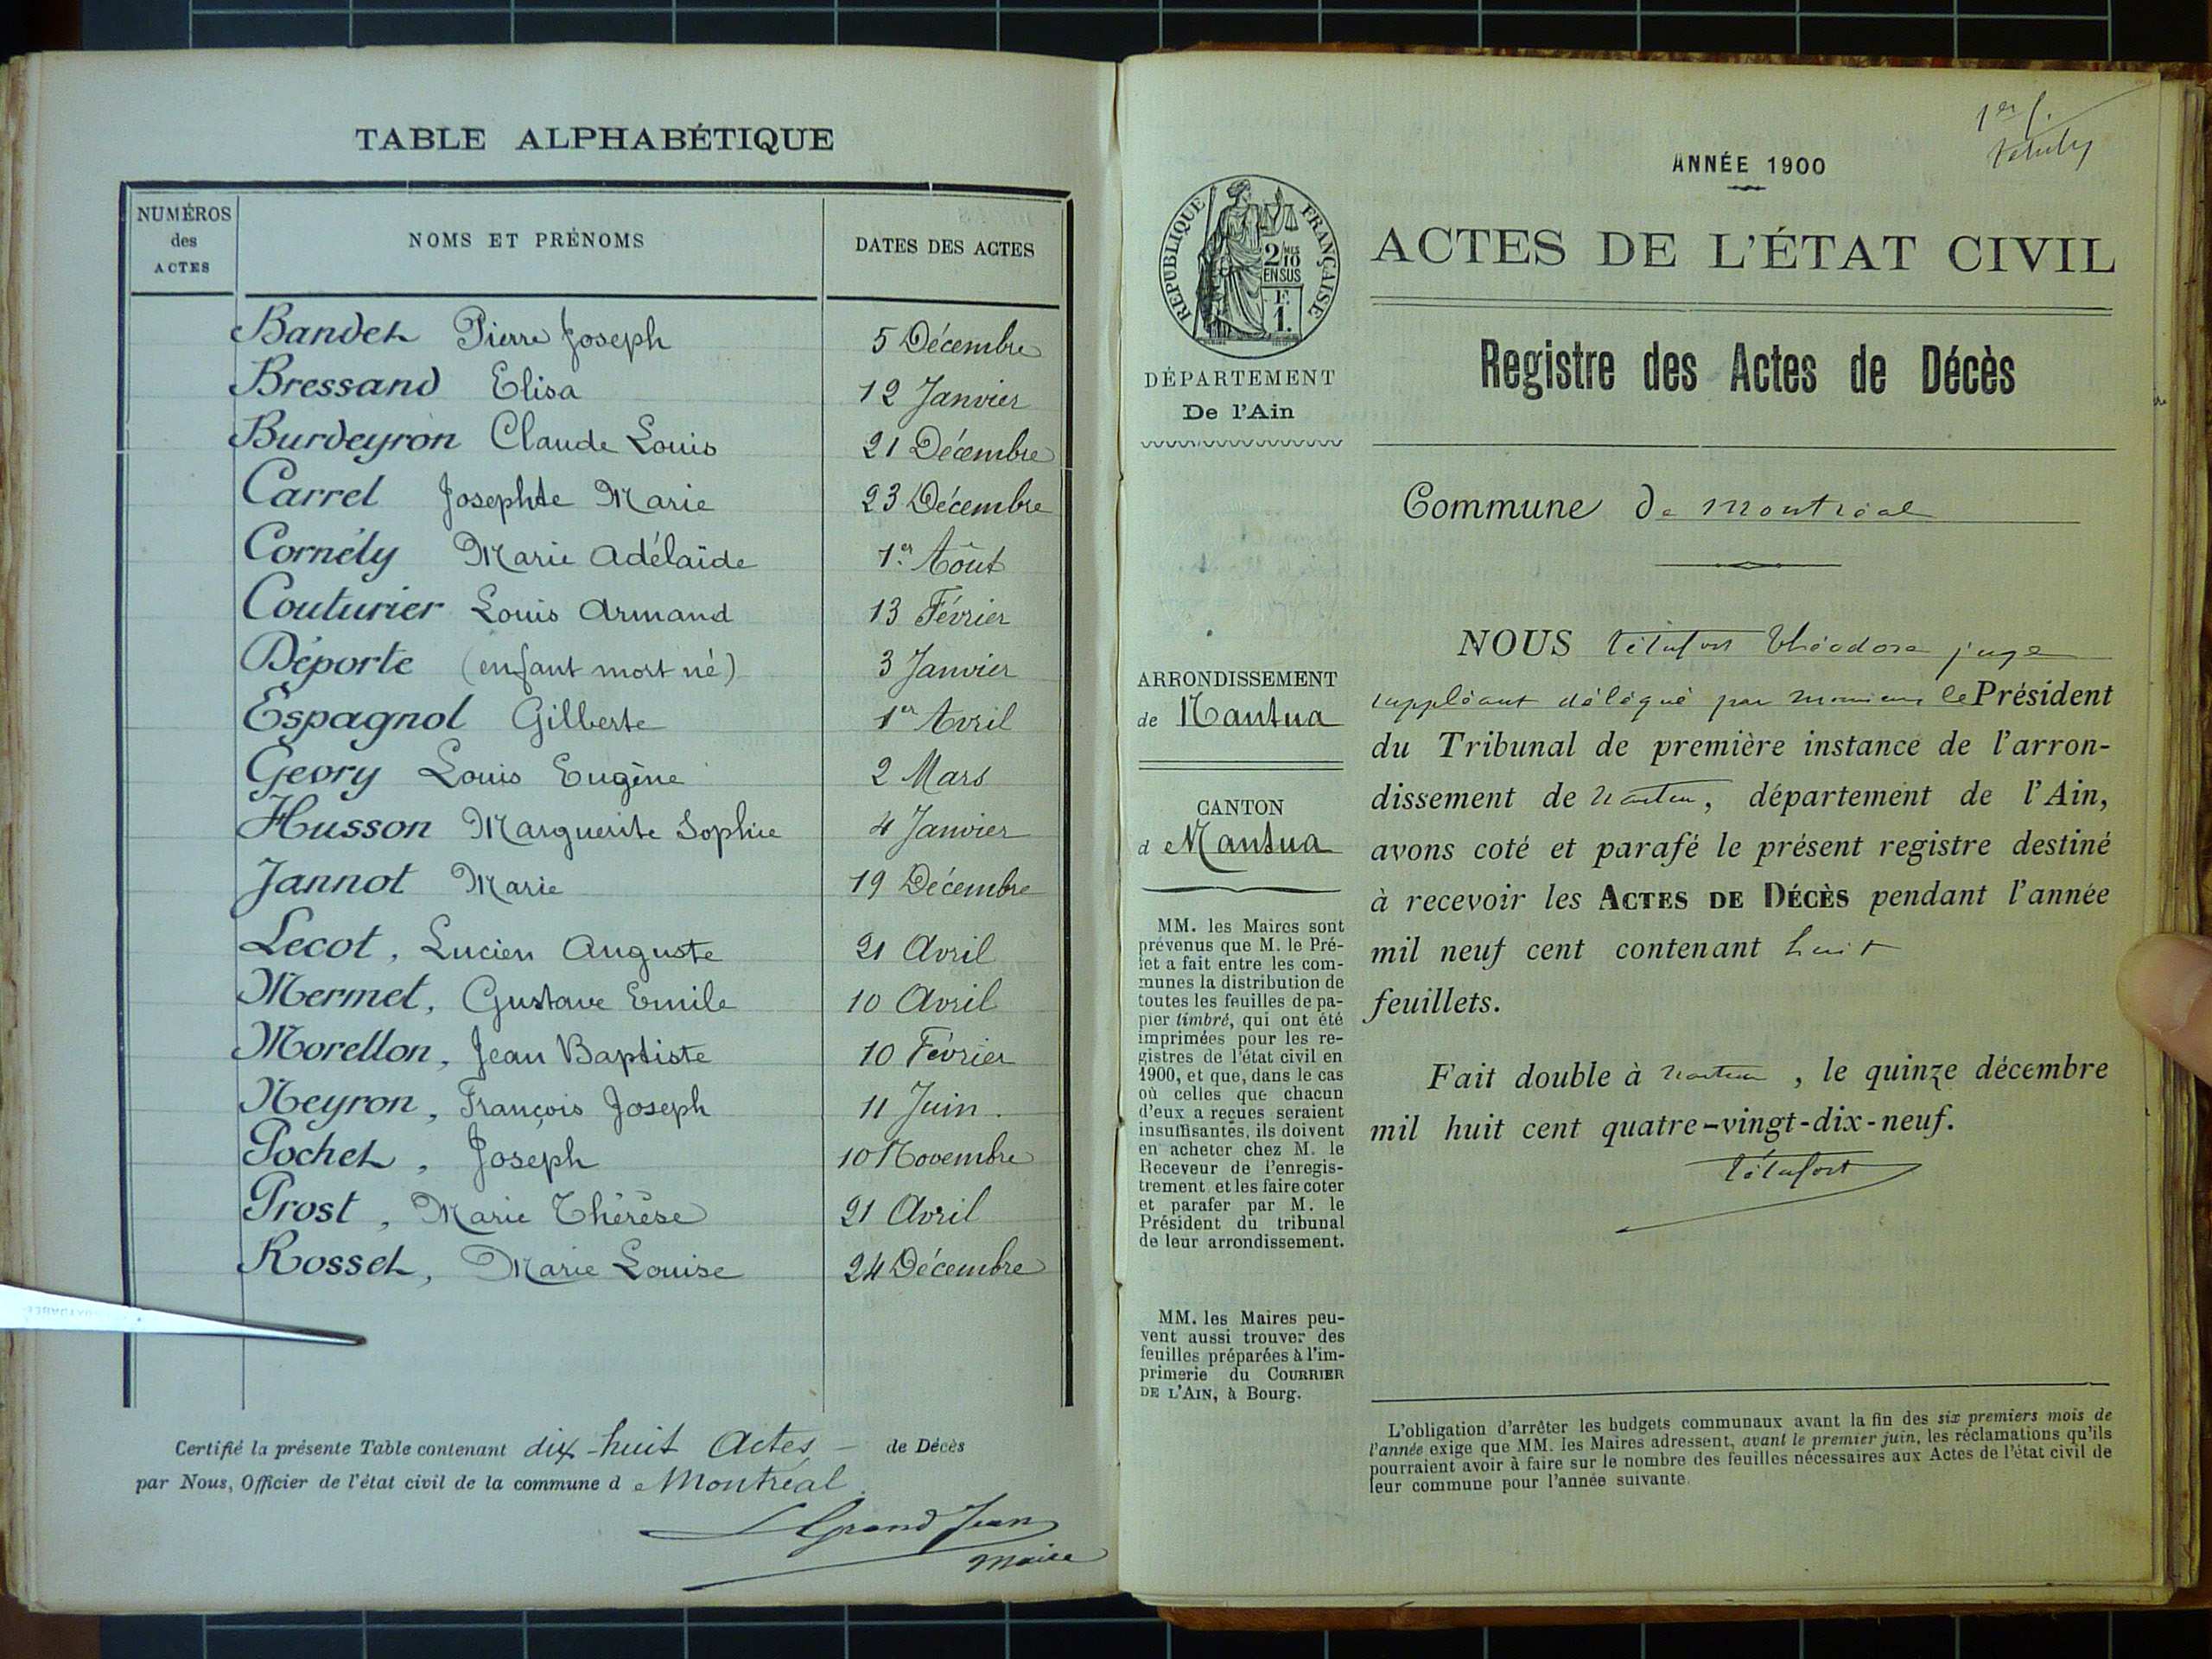 TABLE ALPHABÉTIQUE
NUMÉROS
des
ACTES
NOMS ET PRÉNOMS
DATES DES ACTES
Bandet Pierre Joseph 5 Décembre
Bressand Elisa 12 Janvier
Burdeyron Claude Louis 21 Décembre
Carrel Josephte Marie 23 Décembre
Cornély Marie Adélaïde 1er Aôut
Couturier Louis Armand 13 Février
Déporte (enfant mort né) 3 Janvier
Espagnol Gilberte 1er Avril
Gevry Louis Eugène 2 Mars
Husson Marguerite Sophie 4 Janvier
Jannot Marie 19 Décembre
Lecot, Lucien Auguste 21 Avril
Mermet, Gustave Emile 10 Avril
Morellon, Jean Baptiste 10 Février
Neyron, François Joseph 11 Juin.
Pochet, Joseph 10 Novembre
Prost, Marie Thérèse 21 Avril
Rosset, Marie Louise 24 Décembre
Certifié la présente Table contenant dix-huit Actes — de Décès
par Nous, Officier de l'état civil de la commune de Montréal.
Grand Jean
Maire
1er f.
ANNÉE 1900
RÉPUBLIQUE FRANÇAISE
2/10 MES
EN SUS
F.
1.
DÉPARTEMENT
De l'Ain
ACTES DE L'ÉTAT CIVIL
Registre des Actes de Décès
Commune de Montréal
ARRONDISSEMENT
de Nantua
CANTON
de Nantua
MM. les Maires sont
prévenus que M. le Pré-
fet a fait entre les com-
munes la distribution de
toutes les feuilles de pa-
pier timbré, qui ont été
imprimées pour les re-
gistres de l'état civil en
1900, et que, dans le cas
où celles que chacun
d'eux a reçues seraient
insuffisantes, ils doivent
en acheter chez M. le
Receveur de l'enregis-
trement et les faire coter
et parafer par M. le
Président du tribunal
de leur arrondissement.
MM. les Maires peu-
vent aussi trouver des
feuilles préparées à l'im-
primerie du COURRIER
DE L'AIN, à Bourg.
NOUS Théodore juge
suppléant délégué par monsieur le Président
du Tribunal de première instance de l'arron-
dissement de Nantua, département de l'Ain,
avons coté et parafé le présent registre destiné
à recevoir les ACTES DE DÉCÈS pendant l'année
mil neuf cent contenant huit
feuillets.
Fait double à Nantua, le quinze décembre
mil huit cent quatre-vingt-dix-neuf.
L'obligation d'arrêter les budgets communaux avant la fin des six premiers mois de
l'année exige que MM. les Maires adressent, avant le premier juin, les réclamations qu'ils
pourraient avoir à faire sur le nombre des feuilles nécessaires aux Actes de l'état civil de
leur commune pour l'année suivante.